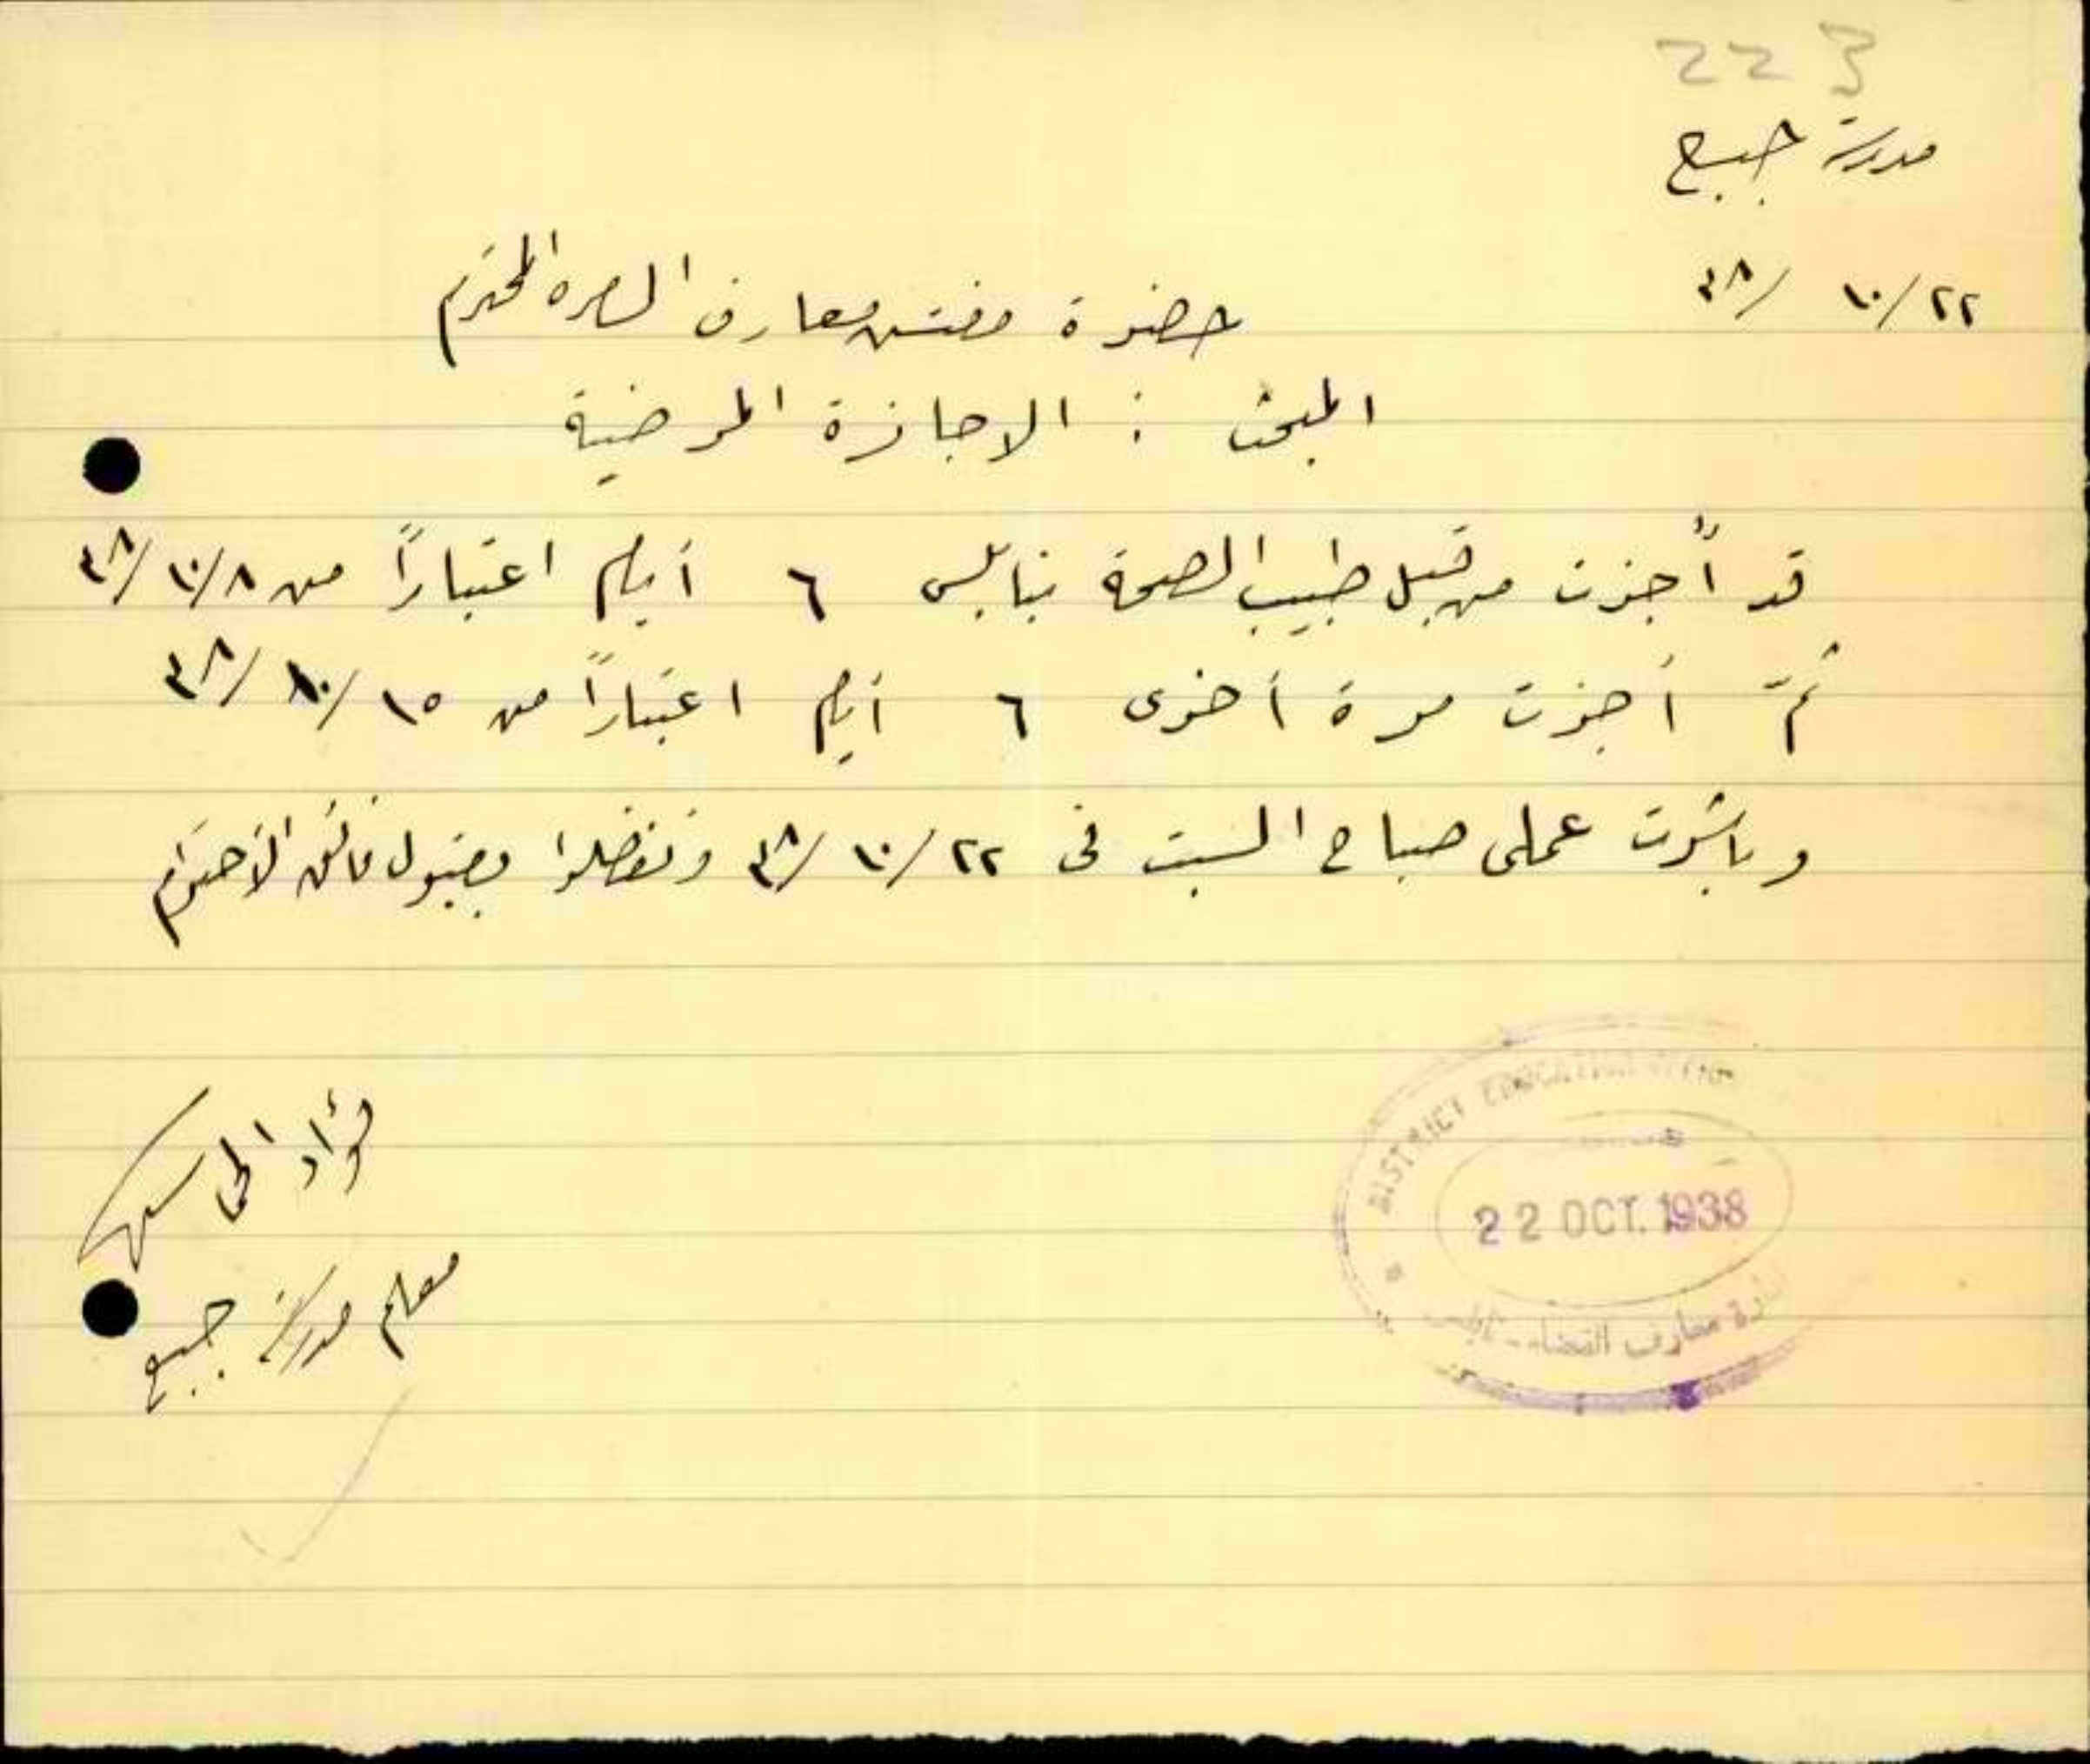 223
مدرسة جبع
٢٢/١٠/٣٨
حضرة مفتش معارف السامرة المحترم
المبحث : الاجازة المرضية
قد أُجزت من قبل طبيب الصحة بنابلس ٦ أيام اعتباراً من ٨/١٠/٣٨
ثمّ أجزت مرة أخرى ٦ أيام اعتباراً من ١٥/١٠/٣٨
وباشرت عملى صباح السبت فى ٢٢/١٠/٣٨ وتفضلوا بقبول فائق الأحترام
فؤاد
معلم مدرسة جبع
DISTRICT EDUCATION OFFICE
22 OCT. 1938
ادارة معارف القضاء - نابلس